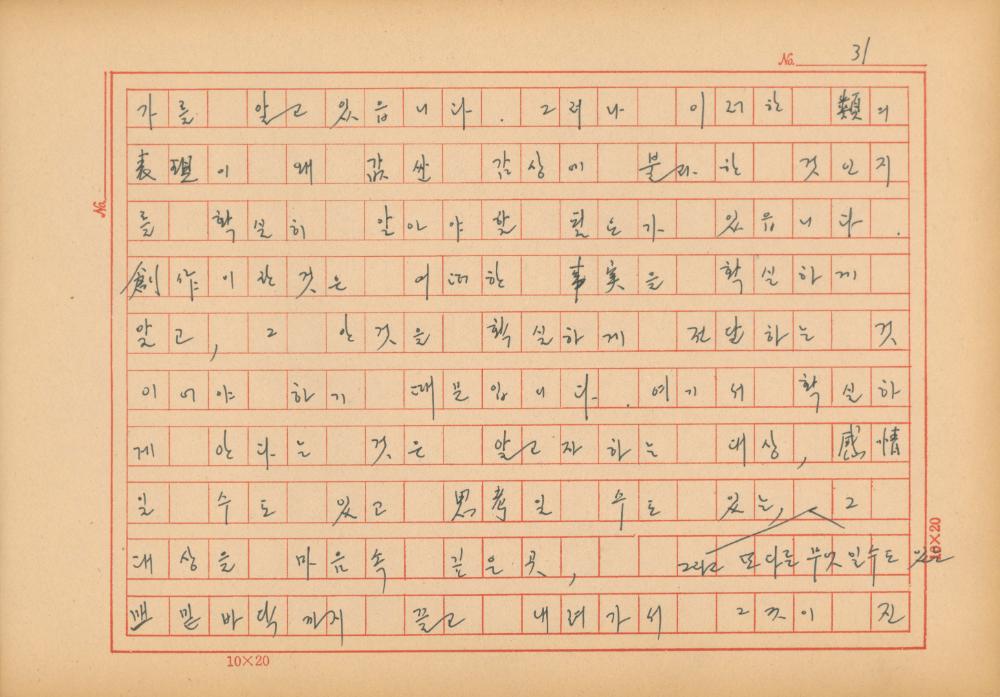 No. 31
가를 알고 있읍니다. 그러나 이러한 類의
表現이 왜 값싼 감상에 불과한 것인지
를 확실히 알아야할 필요가 있읍니다.
創作이란것은 어떠한 事実을 확실하게
알고, 그 안것을 확실하게 전달하는 것
이어야 하기 때문입니다. 여기서 확실하
게 안다는 것은 알고자하는 대상, 感情
일 수도 있고 思考일 수도 있는, 그
그리고 또다른 무엇일수도 있는
대상을 마음속 깊은곳,
맨 밑바닥까지 끌고 내려가서 그것이 진
No.
10×20
10×20